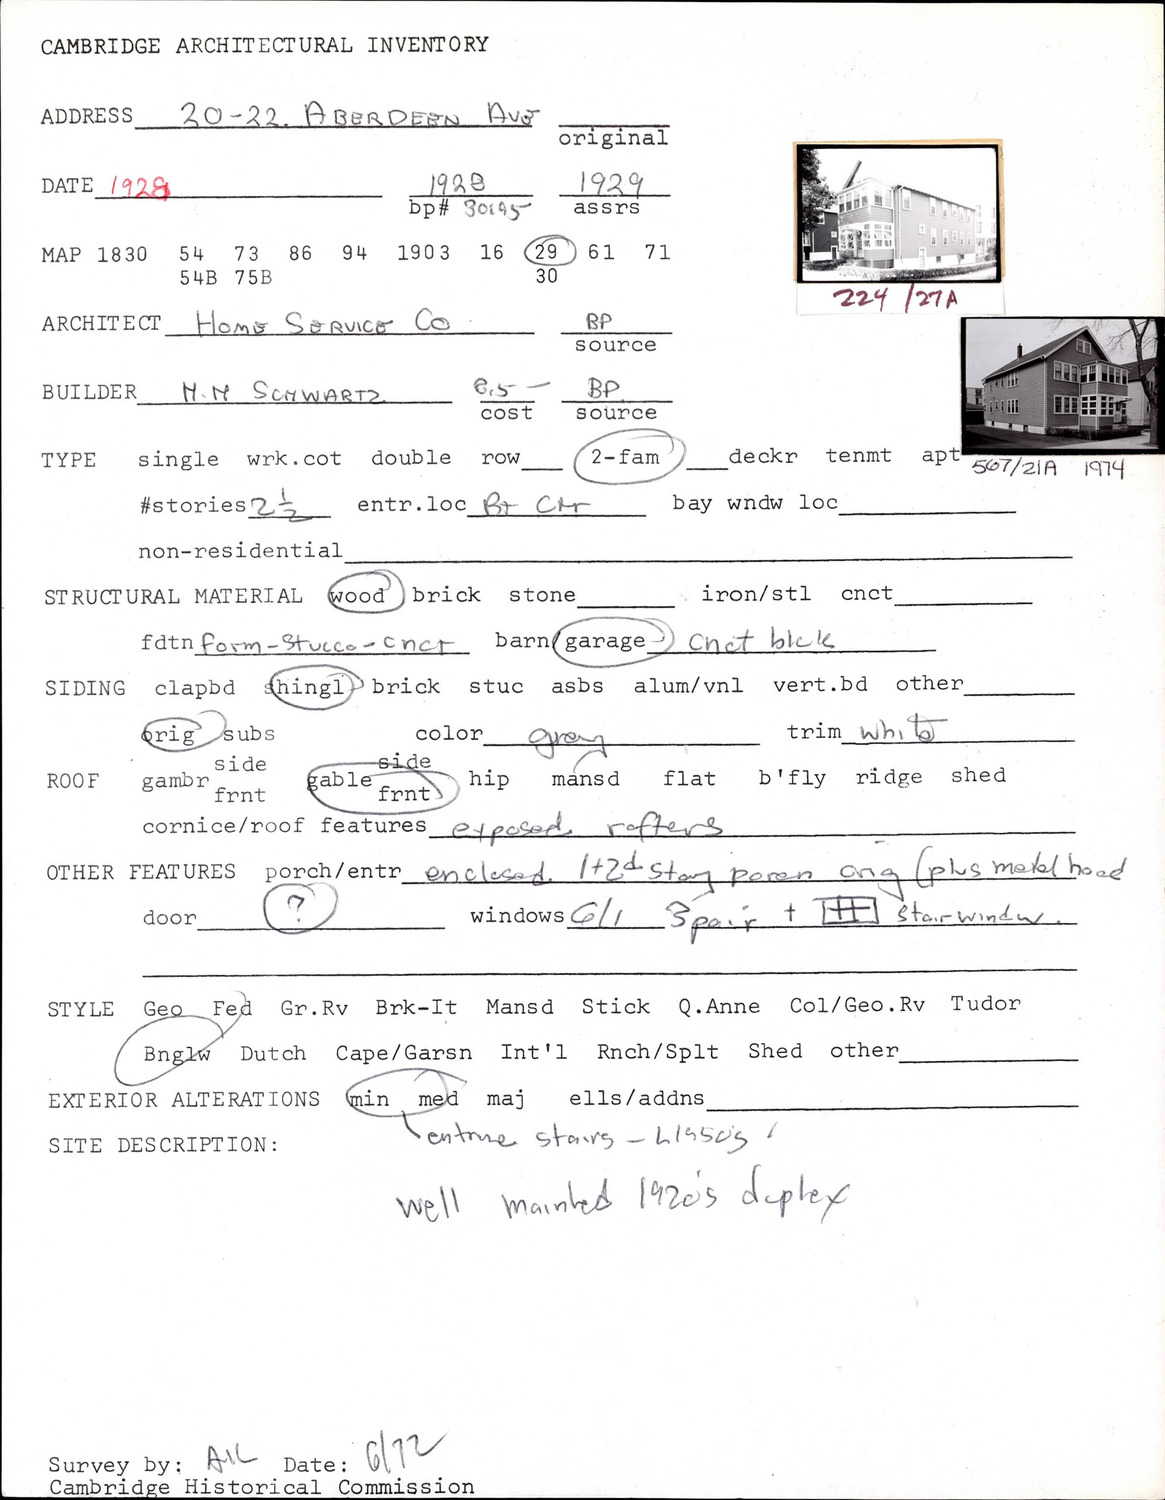 CAMBRIDGE ARCHITECTURAL INVENTORY
ADDRESS 20-22 ABERDEEN AVE
original
DATE 1928 1928 1929
bp# 30195 assrs
MAP 1830 54 73 86 94 1903 16 29 61 71
54B 75B 30
224/27A
ARCHITECT HOME SERVICE CO BP
source
BUILDER H.M SCHWARTZ 8,5— BP
cost source
TYPE single wrk.cot double row 2-fam deckr tenmt apt
567/21A 1974
#stories 2 1/2 entr.loc Rt Ctr bay wndw loc
non-residential
STRUCTURAL MATERIAL wood brick stone iron/stl cnct
fdtn form-stucco-cnct barn/garage cnct blck
SIDING clapbd shingl brick stuc asbs alum/vnl vert.bd other
orig subs color gray trim white
side side
ROOF gambr gable hip mansd flat b'fly ridge shed
frnt frnt
cornice/roof features exposed rafters
OTHER FEATURES porch/entr enclosed 1+2d story porch orig (plus metal hood
door ? windows 6/1 3 pair + stair window.
STYLE Geo Fed Gr.Rv Brk-It Mansd Stick Q.Anne Col/Geo.Rv Tudor
Bnglw Dutch Cape/Garsn Int'l Rnch/Splt Shed other
EXTERIOR ALTERATIONS min med maj ells/addns
entrnce stairs - L1950's
SITE DESCRIPTION:
well mainted 1920's duplex
Survey by: Date: 6/72
Cambridge Historical Commission